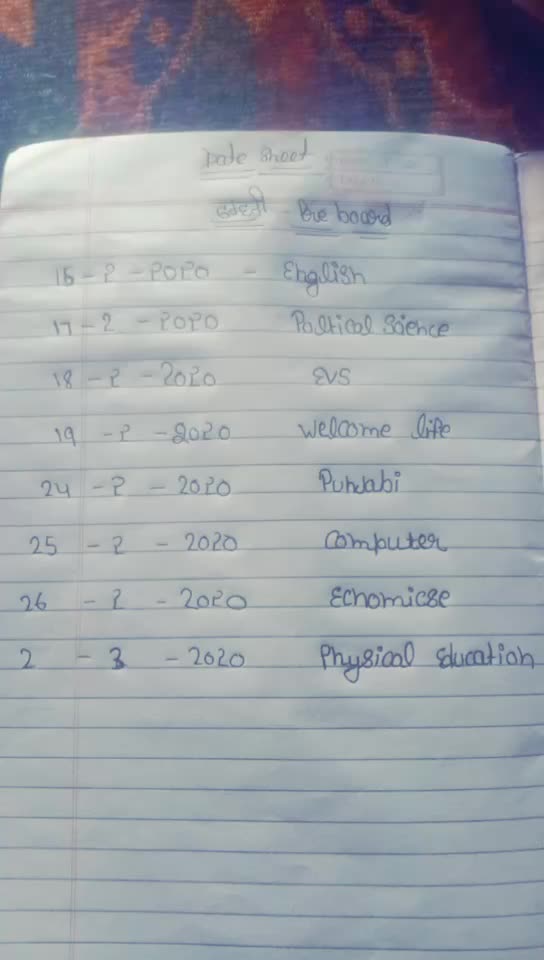 Date Sheet
Pre board
16 - 2 - 2020 - English
17 - 2 - 2020 Poltical Science
18 - 2 - 2020 EVS
19 - 2 - 2020 Welcome life
24 - 2 - 2020 Punjabi
25 - 2 - 2020 Computer
26 - 2 - 2020 Echomicse
2 - 3 - 2020 Physical Education